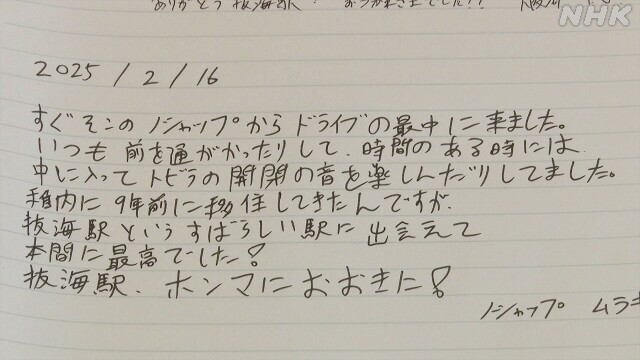 ありがとう 抜海駅！
NHK
2025/2/16
すぐそこのノシャップからドライブの最中に来ました。
いつも前を通がかったりして、時間のある時には
中に入ってトビラの開閉の音を楽しんだりしてました。
稚内に9年前に移住してきたんですが、
抜海駅というすばらしい駅に出会えて
本間に最高でした！
抜海駅、ホンマにおおきに！
ノシャップ ムラキ